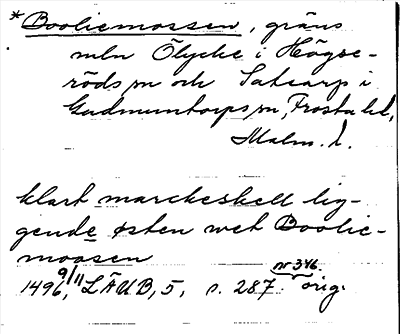 *Booliemossen, gräns
mln Ölycke i Högse-
röds sn och Satsarp i
Gudmuntorps sn, Frosta hd,
Malm. l.
klart marckeskell lig-
gende østen wet Boolie-
moosen
1496 9/11, LÄUB, 5, s. 287 nr 346. orig.